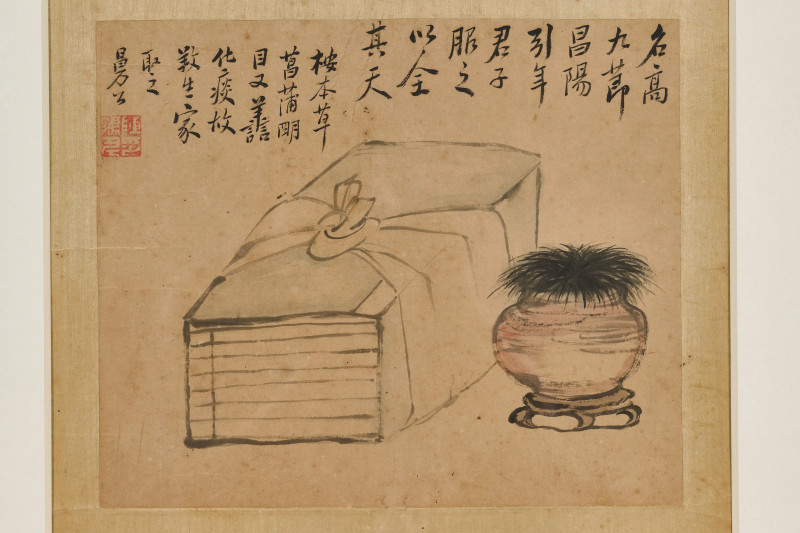 名高
九節
昌陽
引年
君子
服之
以全
其天
按本草
菖蒲明
目又譱
化痰故
養生家
取之
曼公